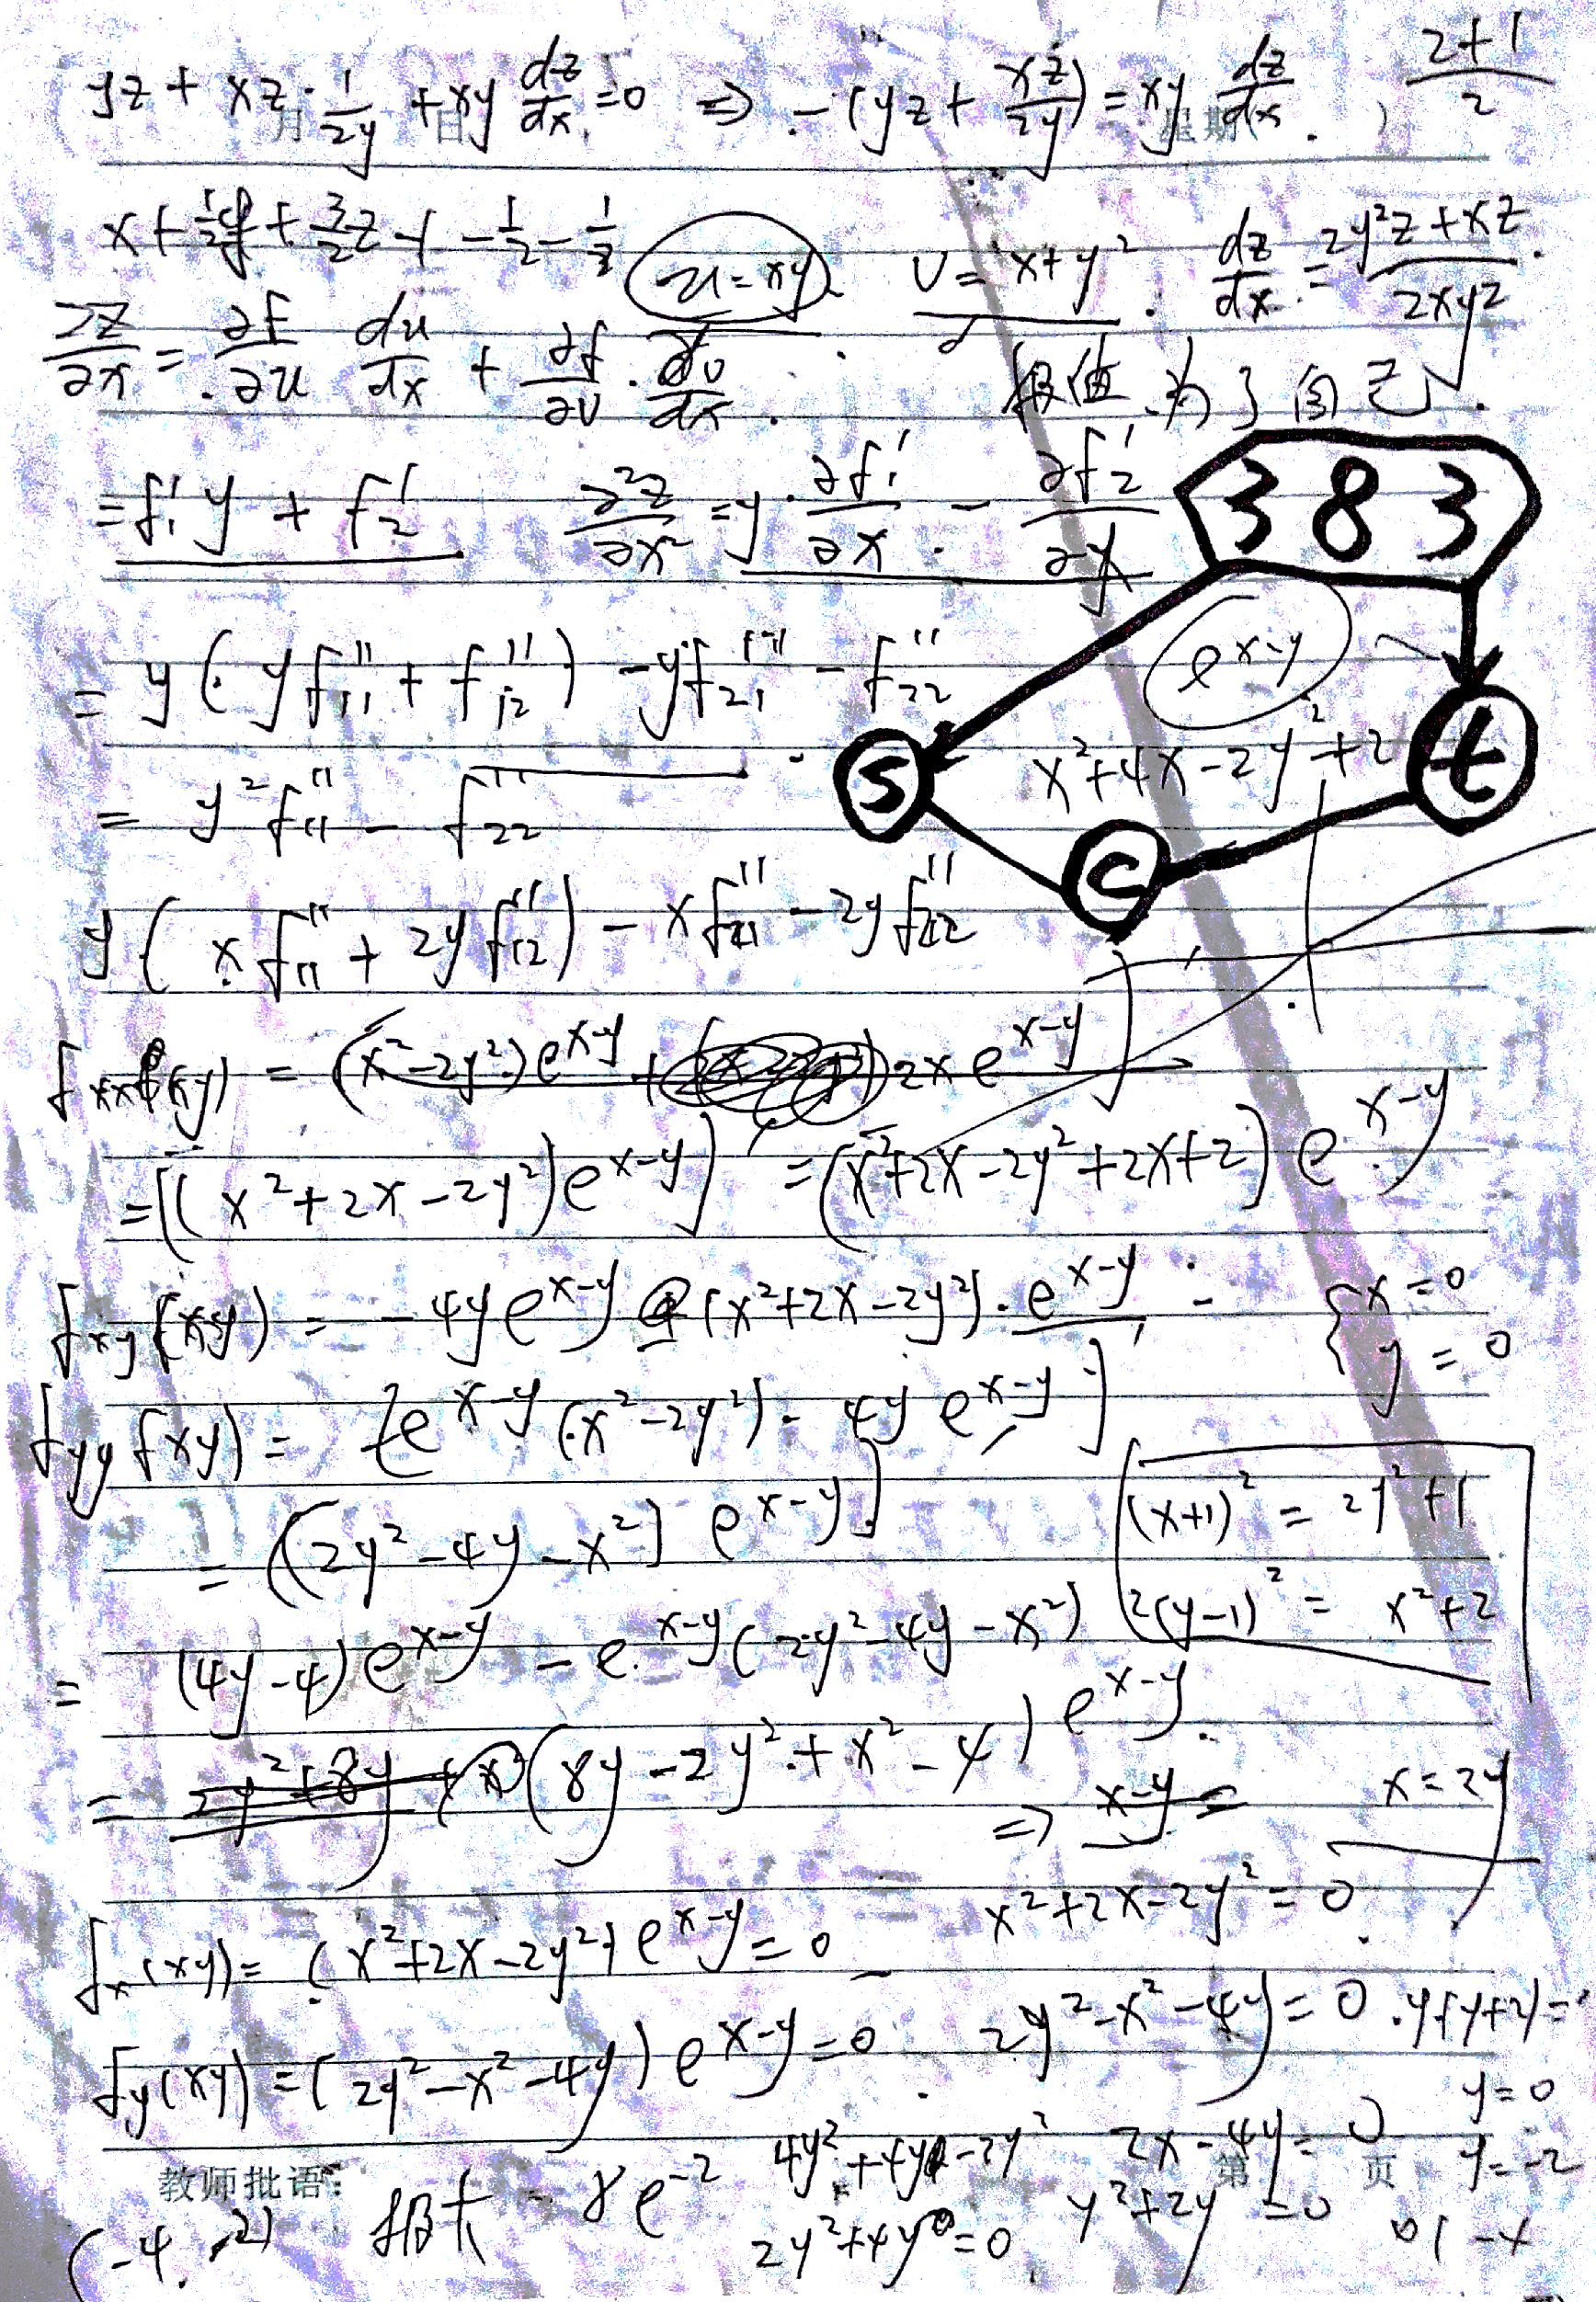 yz + xz · 1/2y + xy dz/dx = 0 ⇒ -(yz + xz/2y) = xy dz/dx . 2+1/2
月 日 星期
x + 1/2 y + 3/2 z - 1 - 1/2 - 1/2
u = xy v = x + y² dz/dx = 2y²z + xz / 2xy²
∂z/∂x = ∂f/∂u du/dx + ∂f/∂v · dv/dx .
= f₁'y + f₂' ∂²z/∂x² = y · ∂f₁'/∂x - ∂f₂'/∂x
3 8 3
e^x-y
= y(yf₁₁'' + f₁₂'') - yf₂₁'' - f₂₂''
x² + 4x - 2y² + 2
S t
C
= y²f₁₁'' - f₂₂''
y(xf₁₁'' + 2yf₁₂'') - xf₂₁'' - 2yf₂₂''
fxx(xy) = (x² - 2y²)e^x-y + 2xe^x-y]
= [(x² + 2x - 2y²)e^x-y]' = (x² + 2x - 2y² + 2x + 2)e^x-y
fxy(xy) = -4ye^x-y (x² + 2x - 2y²) · e^x-y
{ x = 0
y = 0
fyy f(xy) = [-e^x-y(x² - 2y²) - 4ye^x-y]'
= [(2y² - 4y - x²)e^x-y]'
(x+1)² = 2y² + 1
2(y-1)² = x² + 2
= (4y - 4)e^x-y - e^x-y(2y² - 4y - x²)
= 2y² + 8y + x² (8y - 2y² + x² - 4)e^x-y.
⇒ x-y = x = 2y
fx(xy) = (x² + 2x - 2y²)e^x-y = 0
x² + 2x - 2y² = 0
fy(xy) = (2y² - x² - 4y)e^x-y = 0
2y² - x² - 4y = 0 . y(y+2) =
4y² + 4y - 2y² 2x - 4y = 0 y = 0
教师批语: 第 页 y = -2
(-4, -2) 极大 = 8e^-2 2y² + 4y = 0 y² + 2y = 0 0 | -4